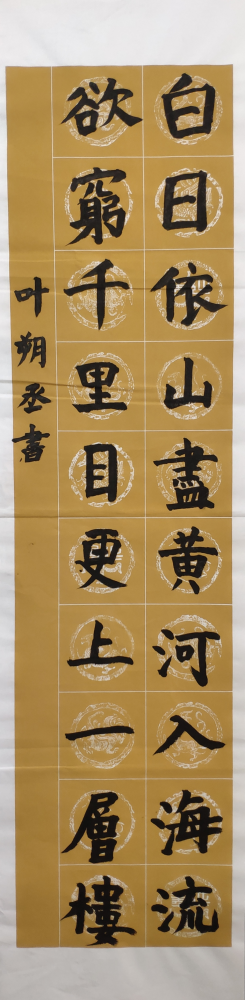 白日依山盡黄河入海流
欲窮千里目更上一層樓
叶朔丞書